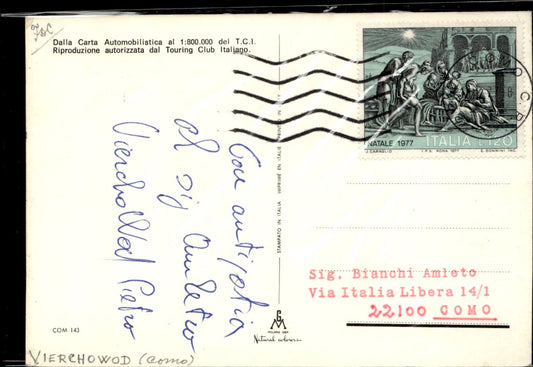 FDC
Dalla Carta Automobilistica al 1:800.000 del T.C.I.
Riproduzione autorizzata dal Touring Club Italiano.
Con
al Sig
Vierchowod Pietro
COM 143
VIERCHOWOD (COMO)
STAMPATO IN ITALIA
MILANO
Natural colour
NATALE 1977 ITALIA L.120
J. CARAGLIO I.P.S. ROMA 1977 E. DONNINI INC.
Sig. Bianchi Amleto
Via Italia Libera 14/1
22100 COMO